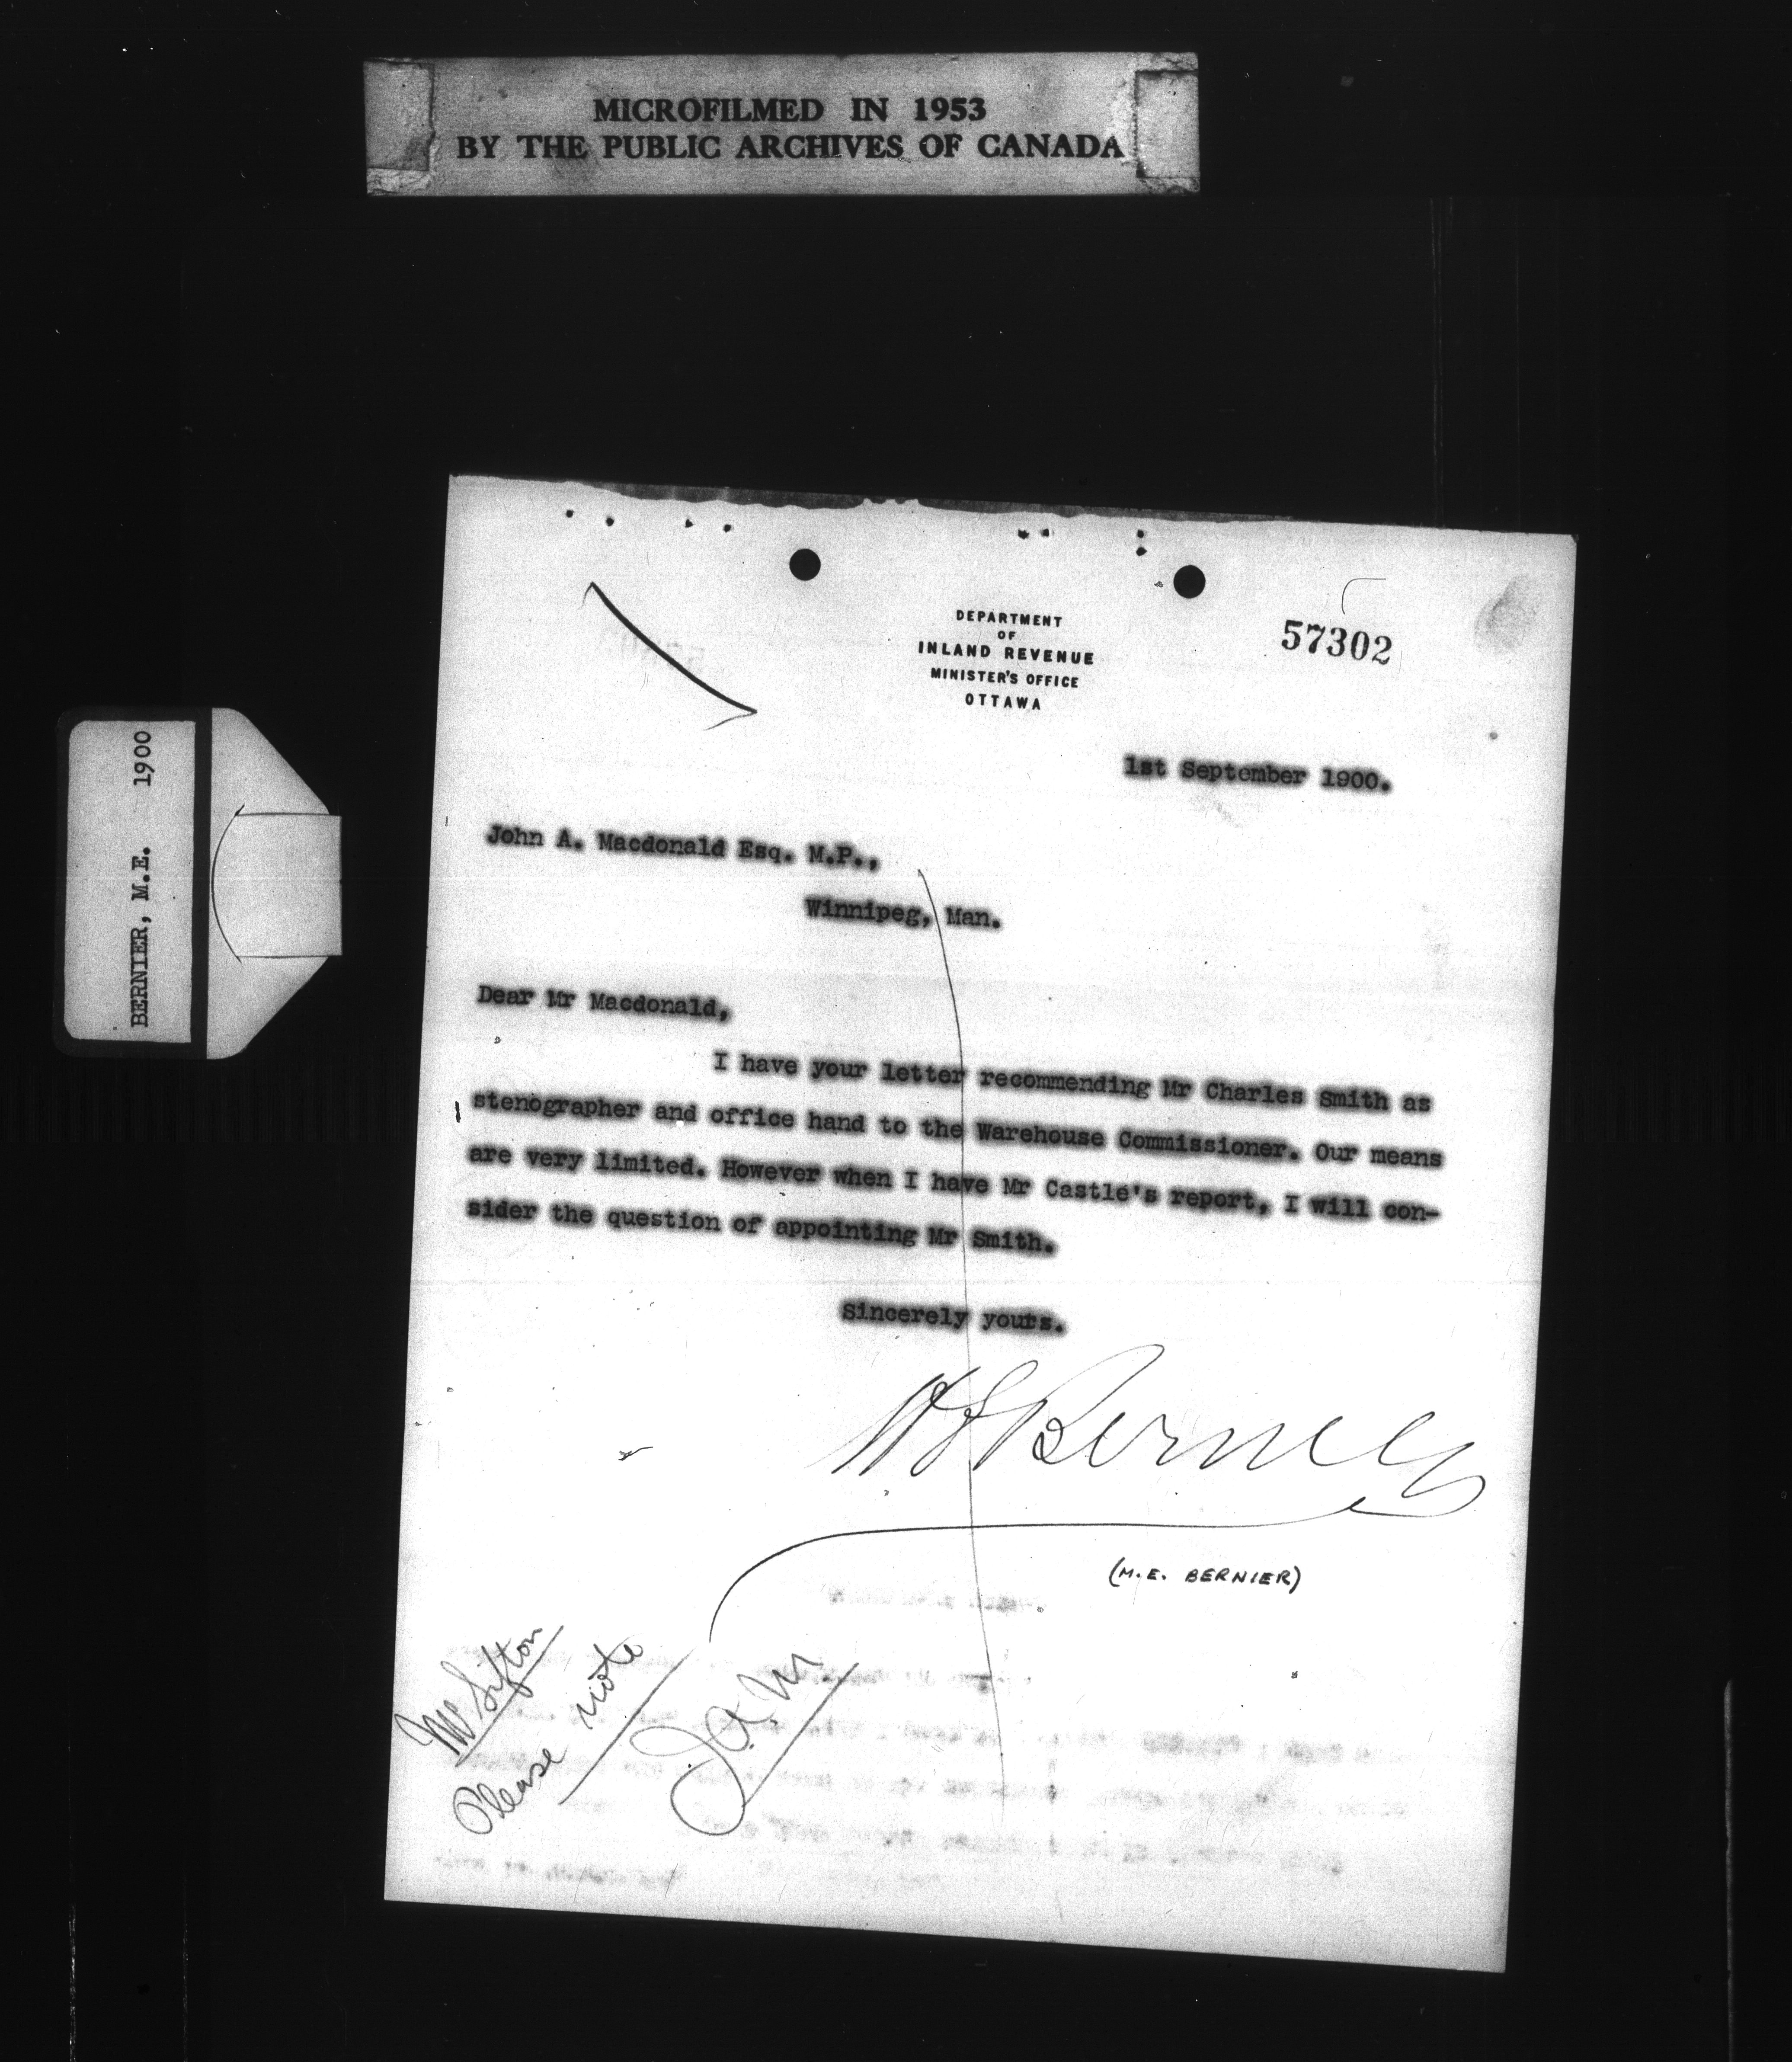 MICROFILMED IN 1953
BY THE PUBLIC ARCHIVES OF CANADA
BERNIER, M.E. 1900
DEPARTMENT
OF
INLAND REVENUE
MINISTER'S OFFICE
OTTAWA
57302
1st September 1900.
John A. Macdonald Esq. M.P.,
Winnipeg, Man.
Dear Mr Macdonald,
I have your letter recommending Mr Charles Smith as
stenographer and office hand to the Warehouse Commissioner. Our means
are very limited. However when I have Mr Castle's report, I will con-
sider the question of appointing Mr Smith.
Sincerely yours.
M E Bernier
(M.E. BERNIER)
Mr Sifton
Please note
J.A.M